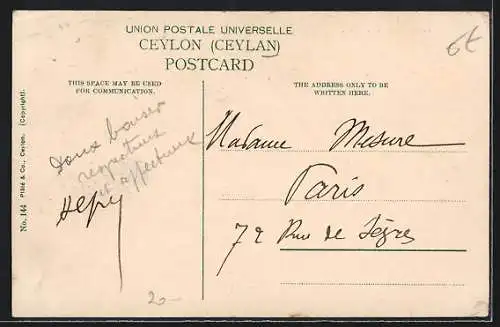 UNION POSTALE UNIVERSELLE
CEYLON (CEYLAN)
POSTCARD
6€
THIS SPACE MAY BE USED
FOR COMMUNICATION.
THE ADDRESS ONLY TO BE
WRITTEN HERE.
No. 144 Plâté & Co., Ceylon. (Copyright).
Doux baiser
respectueux
et affectueux
Madame Mesure
Paris
72 Rue de Sègres
2-